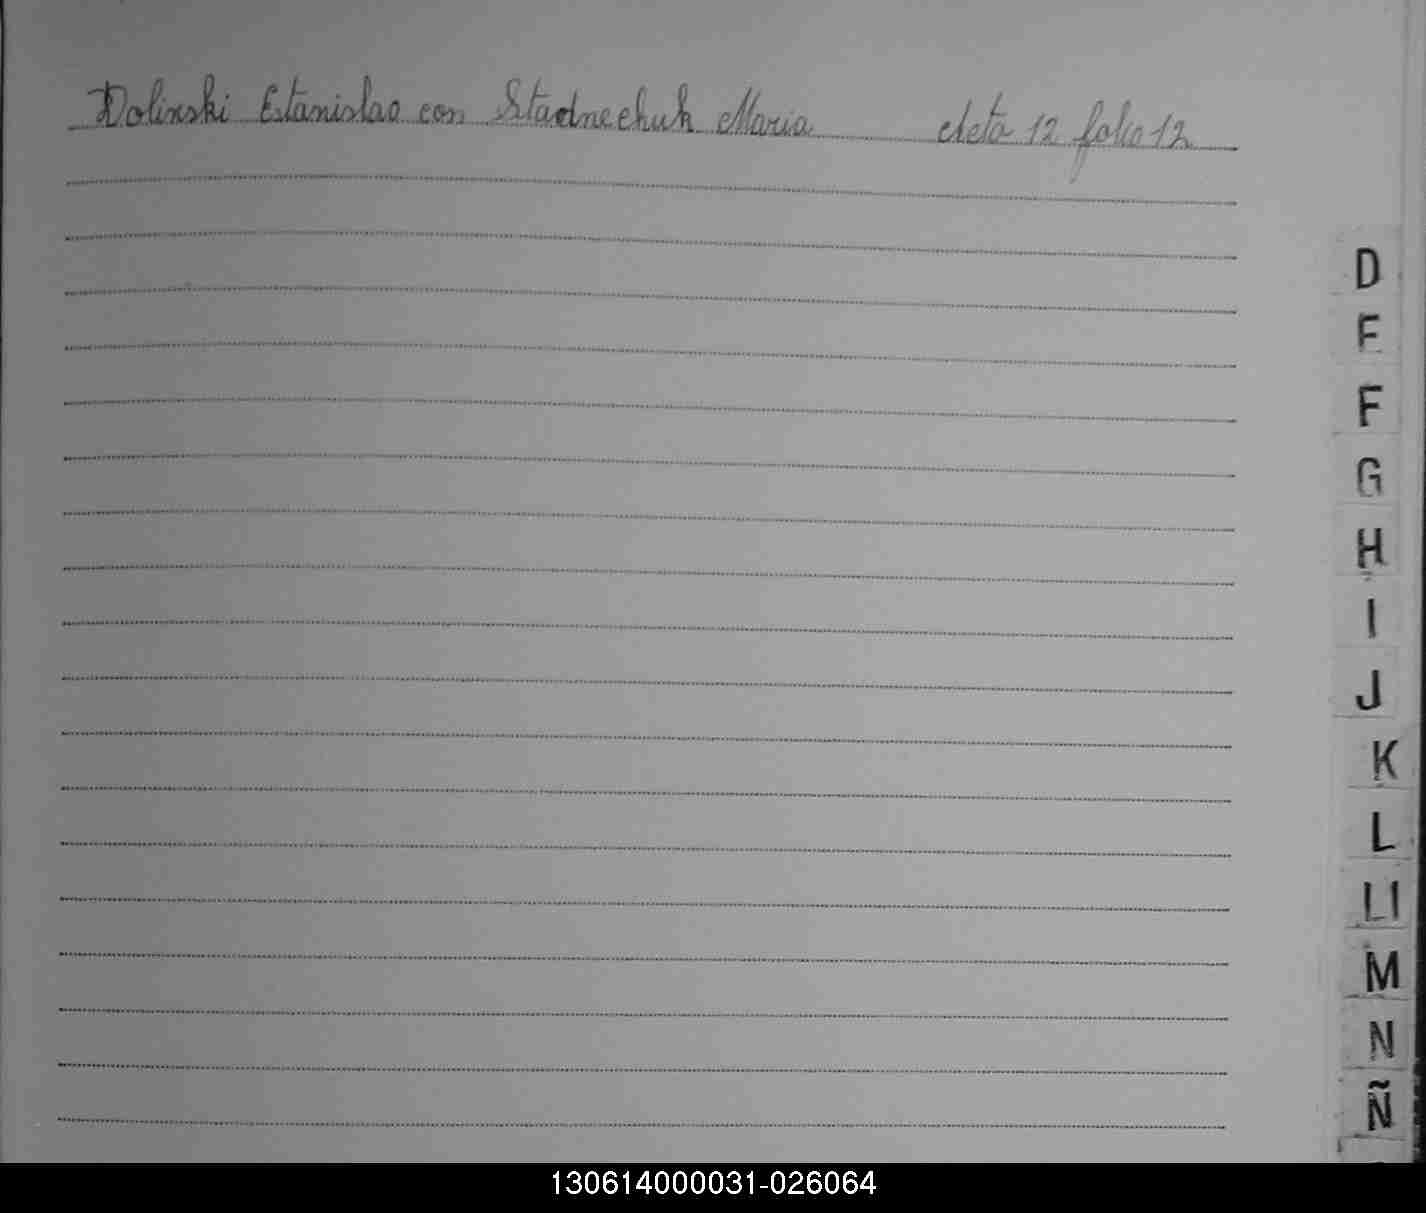 Dolinski Estanislao con Stadnechuk Maria Acta 12 folio 12
D
E
F
G
H
I
J
K
L
Ll
M
N
Ñ
130614000031-026064